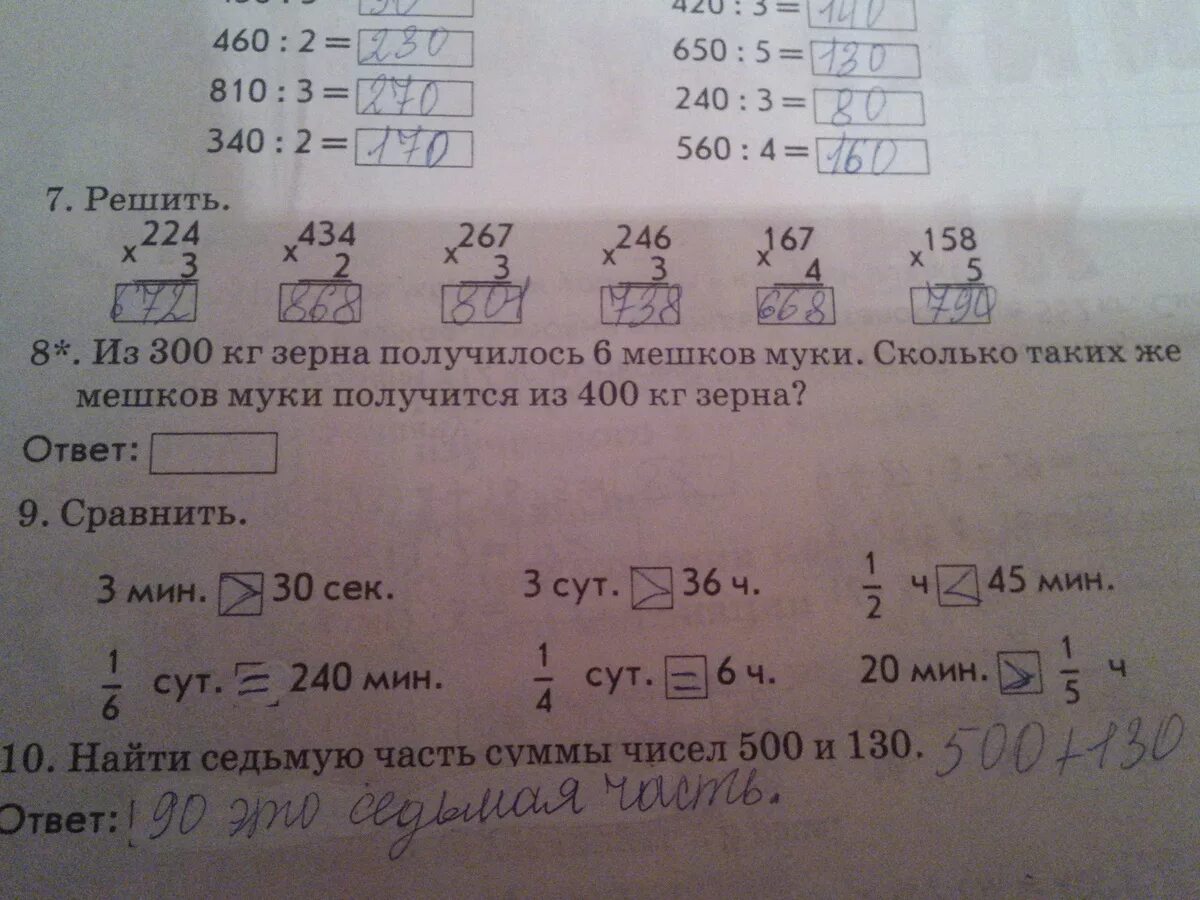 420 : 3 = 140
460 : 2 = 230
650 : 5 = 130
810 : 3 = 270
240 : 3 = 80
340 : 2 = 170
560 : 4 = 160
7. Решить.
x 224 x 434 x 267 x 246 x 167 x 158
3 2 3 3 4 5
672 868 801 738 668 790
8*. Из 300 кг зерна получилось 6 мешков муки. Сколько таких же
мешков муки получится из 400 кг зерна?
Ответ:
9. Сравнить.
3 мин. > 30 сек. 3 сут. > 36 ч. 1/2 ч < 45 мин.
1/6 сут. = 240 мин. 1/4 сут. = 6 ч. 20 мин. > 1/5 ч
10. Найти седьмую часть суммы чисел 500 и 130. 500+130
Ответ: 90 это седьмая часть.